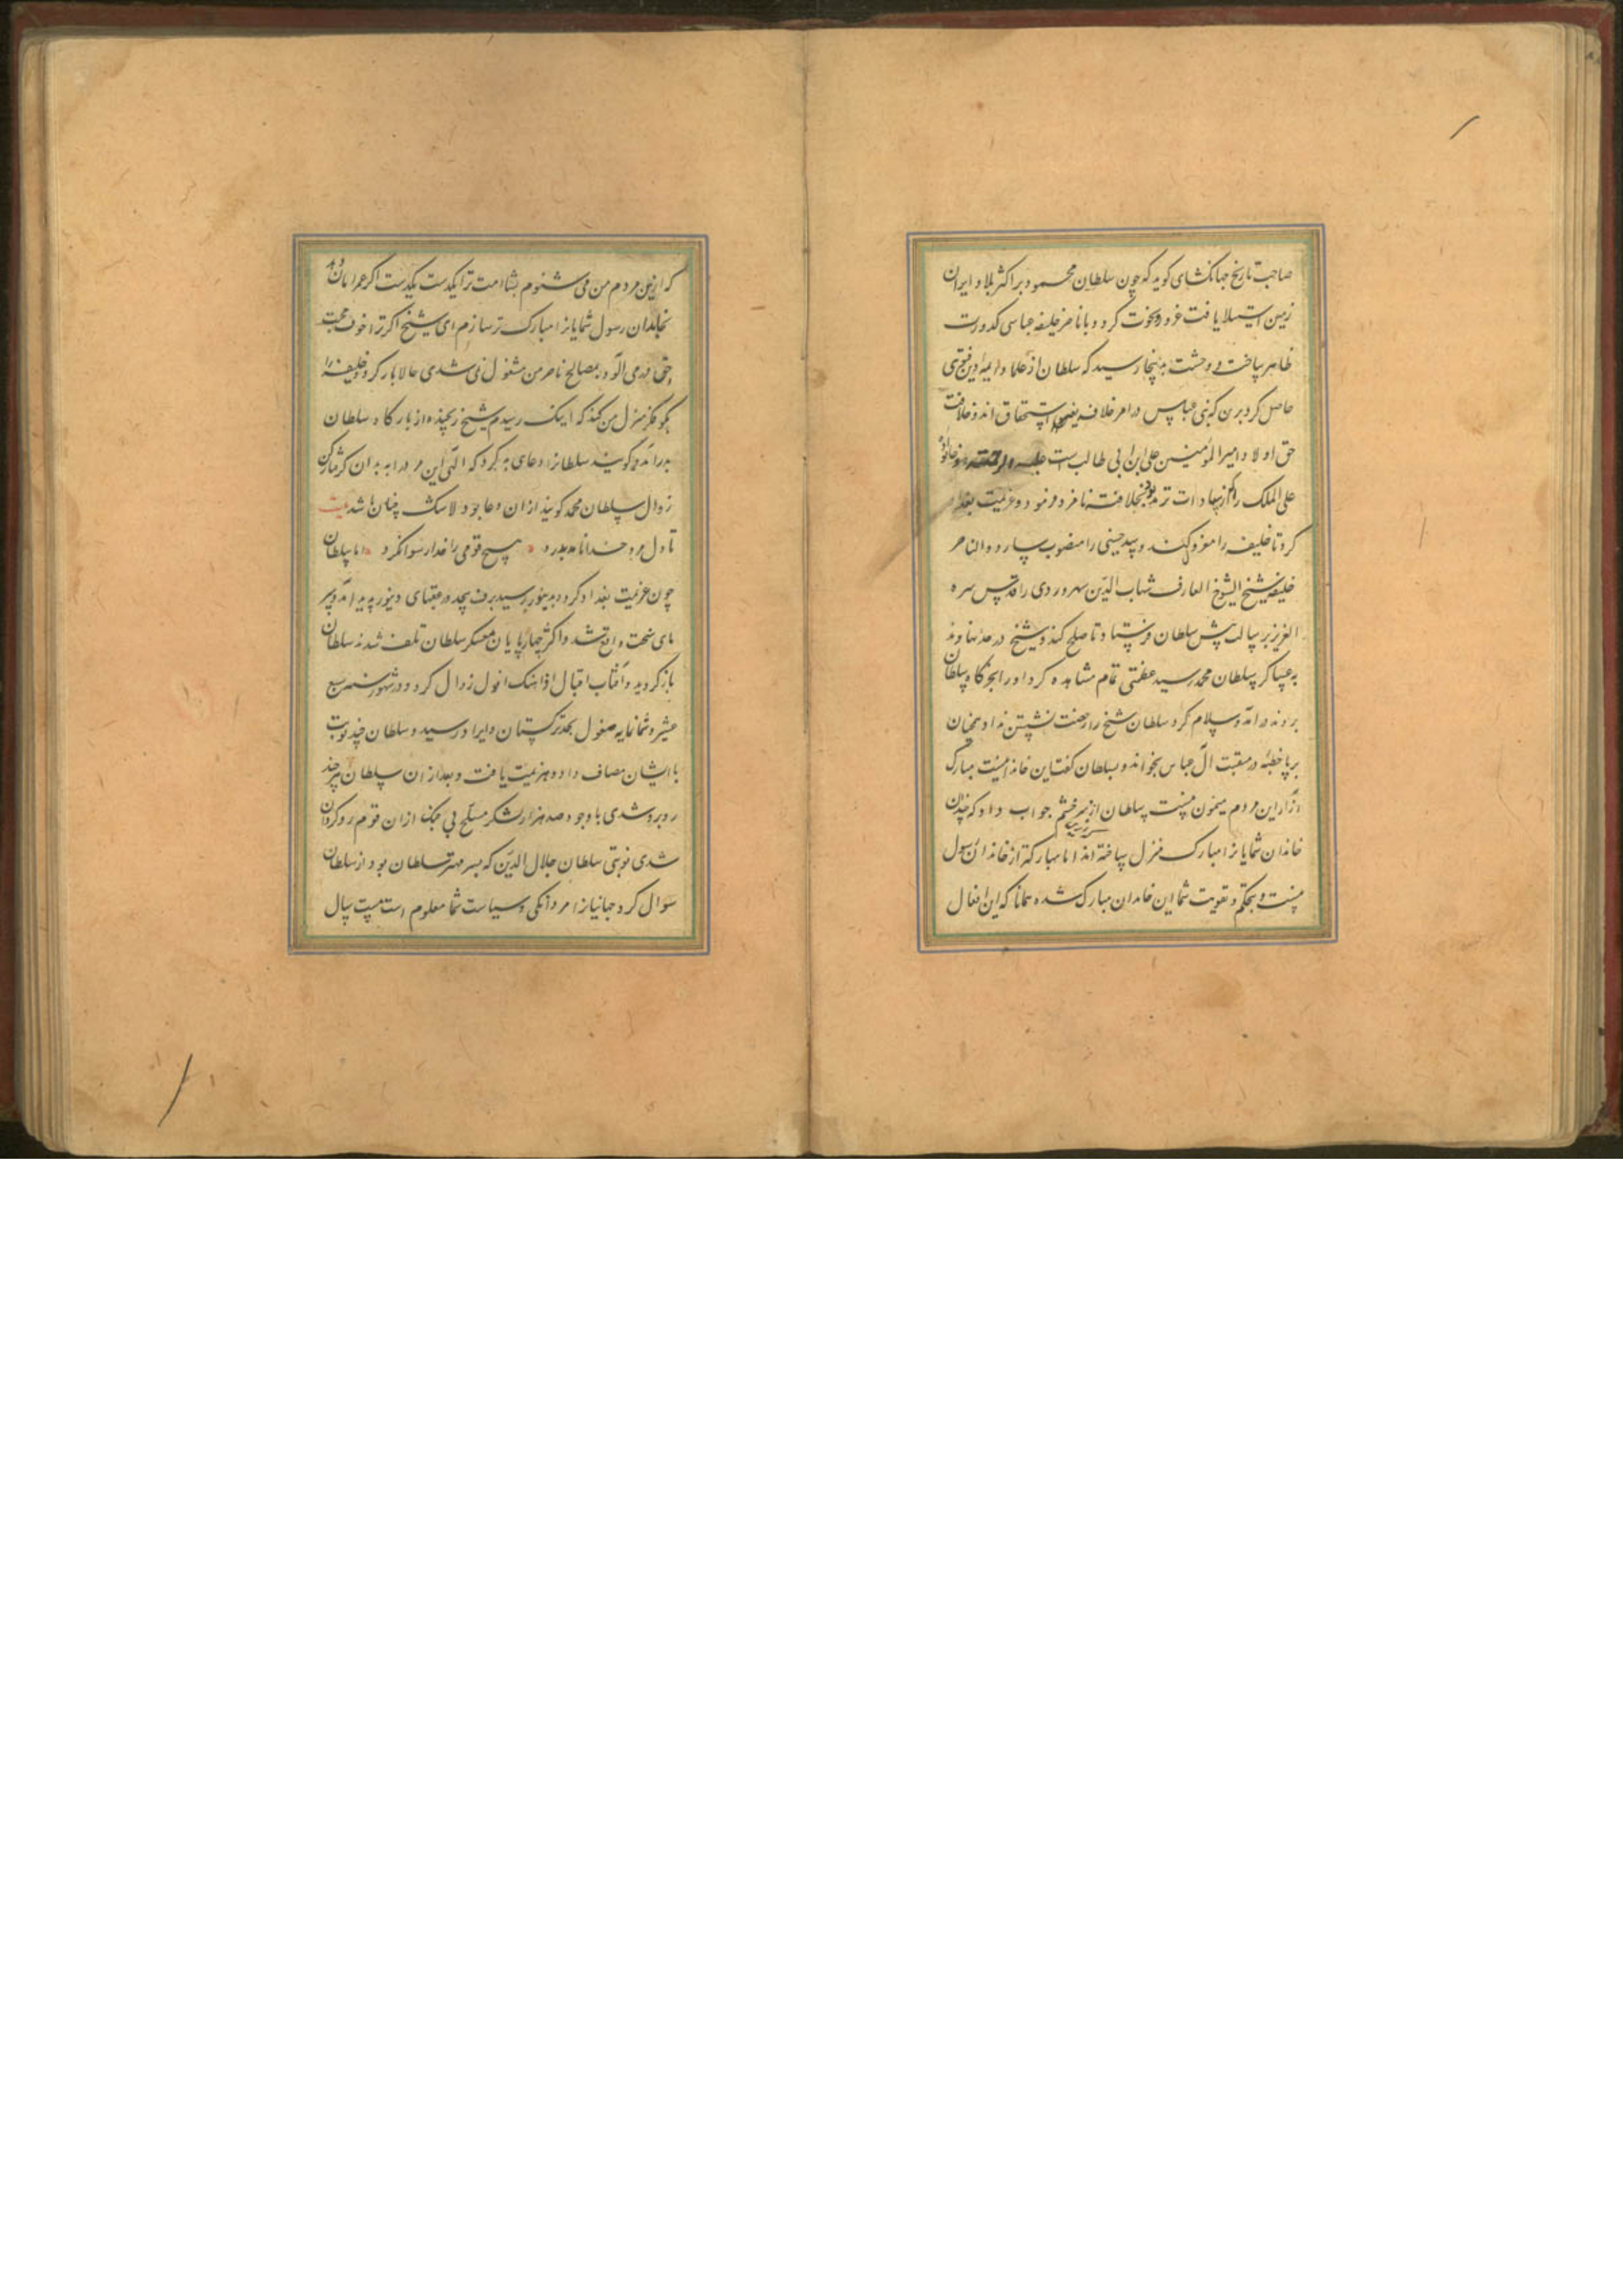 صاحب تاریخ جهانکشای کوید که چون سلطان محمود بر اکثر بلاد ایران
زمین استیلا یافت غرور و نخوت کرد و با ناصر خلیفه عباسی کدورت
ظاهر ساخت و وحشت بدینجا رسید که سلطان از علما و ایمه دین فتوی
حاصل کرد برن که بنی عباس در امر خلافت استحقاق اند و خلافت
حق اولاد امیر المومنین علی ابن ابی طالب است علیه
علی الملک را که از سادات ترمد بود بخلافت نامزد فرمود و عزیمت بغداد
کرد تا خلیفه را معزول کند و سید حسینی را منصوب سازد و الناصر
خلیفه شیخ الشیوخ العارف شهاب الدین سهروردی را قدس سره
العزیز برسالت پیش سلطان فرستاد تا صلح کند و شیخ در حد نهاوند
به عساکر سلطان محمد رسید عظمتی تمام مشاهده کرد او را بخرکاه سلطان
بردند در آمد و سلام کرد سلطان شیخ را رخصت نشستن نداد همچنان
بر پا خطبه در منقبت آل عباس بخواند و بسلطان کفت این خاندانیست مبارک
آزار این مردم میمون نیست سلطان از سر خشم جواب داد که چندان
خاندان شمایانرا مبارک منزل ساخته اند اما مبارکتر از خاندان رسول
نیست و بحکم و تقویت شما این خاندان مبارک شده همانا که این افعال
که ازین مردم من می شنوم بشامت ترا یکدست یکدست اکر عمر امان دهد
بخاندان رسول شمایانرا مبارک تر سازم ای شیخ اکر ترا خوف محبت
حق قدمی الود بمصالح ناصر من مشغول نمی شدی حالا بازکرد و خلیفه را
بکو فکر منزل من کند که اینک رسیدم شیخ رنجیده از بارکاه سلطان
بدر آمد و کویند سلطانرا دعای بد کرد که الهی این مرد را به بدان کرفتار کن
زوال سلطان محمد کویند از ان دعا بود لاشک چنان باشد بیت
تا دل مرد خدا نامد بدرد هیچ قومی را خدا رسوا نکرد اما سلطان
چون عزیمت بغداد کرد و بدینور رسید برف بیحد در عقبهای دینور پدید آمد و سر
مای سخت واقع شد و اکثر چهارپایان معسکر سلطان تلف شدند سلطان
بازکردید و آفتاب اقبال او اهنک افول زوال کرد و در شهور سنه سبع
عشر و ستمائه مغول بحد ترکستان و اترار رسید و سلطان چند نوبت
با ایشان مصاف داد و هزیمت یافت و بعد از ان سلطان هر چند
روبرو شدی با وجود صد هزار لشکر مسلح بی جنک از ان قوم رو کردان
شدی نوبتی سلطان جلال الدین که پسر مهتر سلطان بود از سلطان
سوال کرد جهانیانرا مردانکی و سیاست شما معلوم است بیست سال